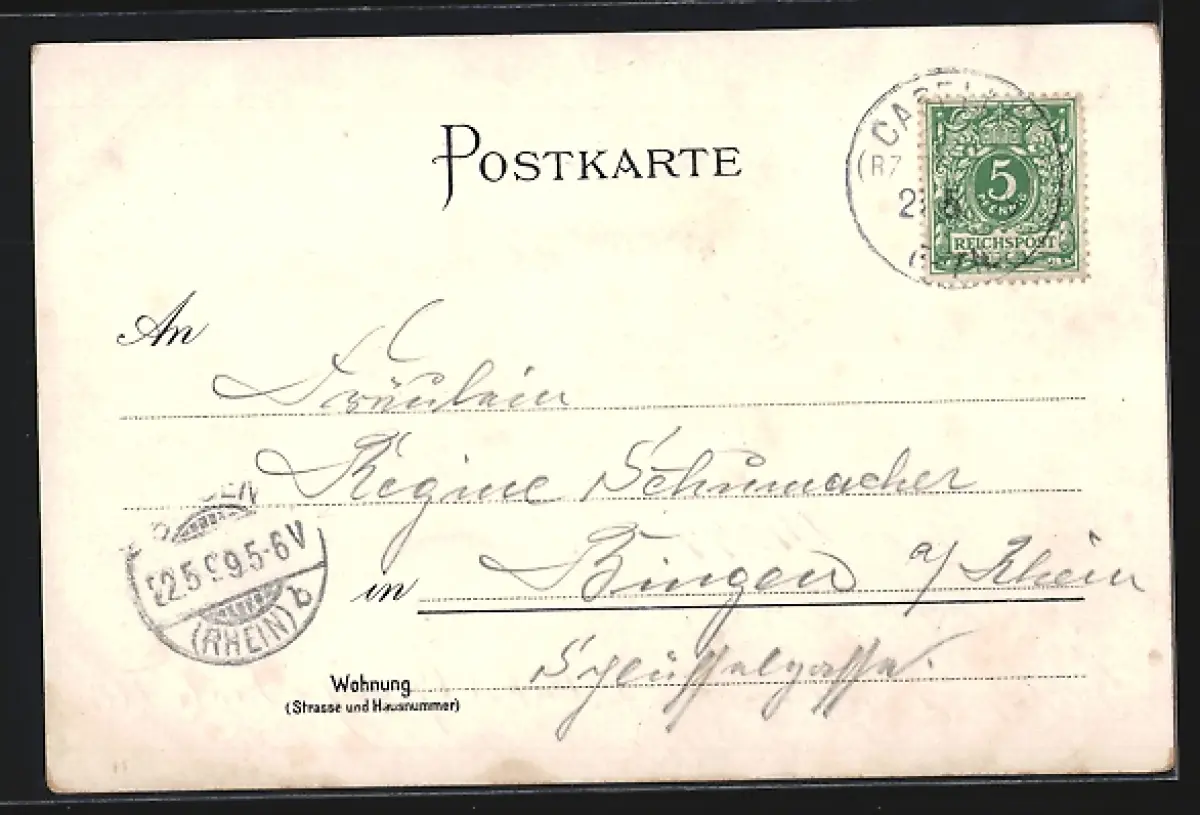 POSTKARTE
CASTEL
(BZ
5
PFENNIG
REICHSPOST
An
Fräulein
Regine Schumacher
in Bingen a/ Rhein
Schlüsselgasse.
Wohnung
(Strasse und Hausnummer)
22.5.99.5-6V
(RHEIN) b